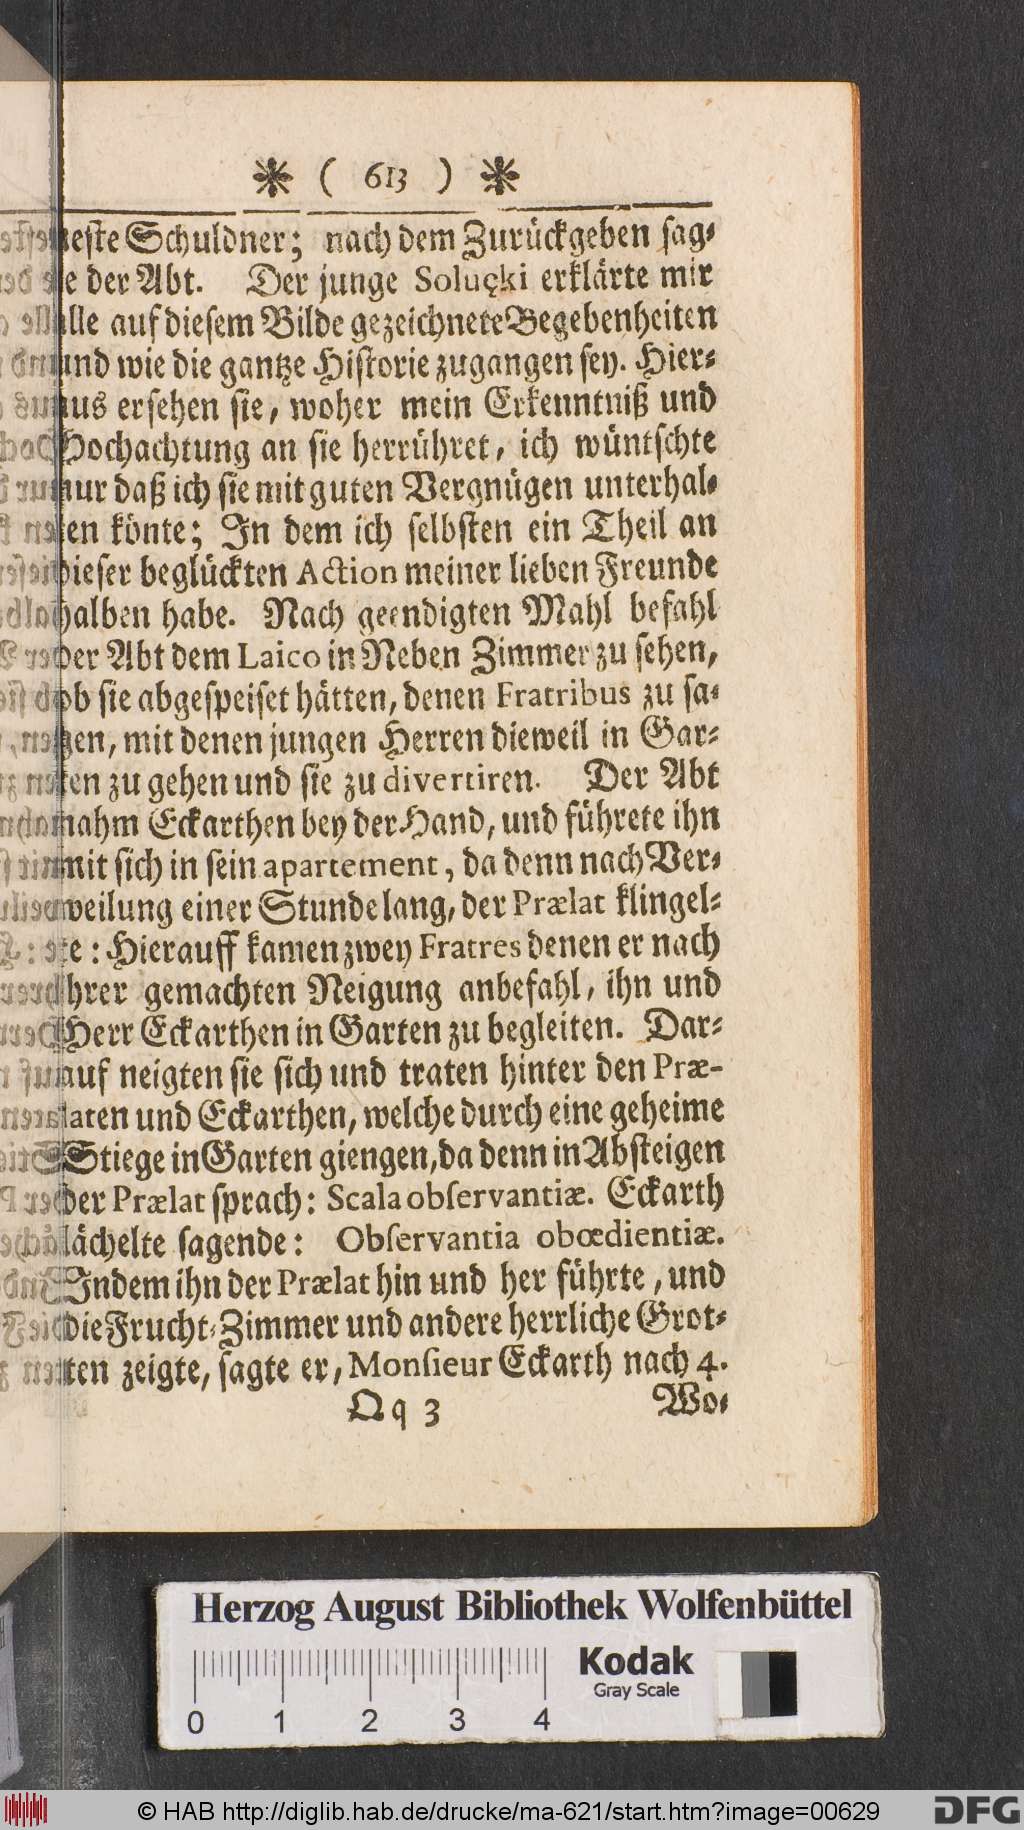 ✻ ( 613 ) ✻
neste Schuldner; nach dem Zurückgeben sag⸗
te der Abt. Der junge Soluçki erklärte mir
alle auf diesem Bilde gezeichnete Begebenheiten
und wie die gantze Historie zugangen sey. Hier⸗
aus ersehen sie, woher mein Erkenntniß und
Hochachtung an sie herrühret, ich wüntschte
nur daß ich sie mit guten Vergnügen unterhal⸗
ten könte; In dem ich selbsten ein Theil an
dieser beglückten Action meiner lieben Freunde
halben habe. Nach geendigten Mahl befahl
der Abt dem Laico in Neben Zimmer zu sehen,
ob sie abgespeiset hätten, denen Fratribus zu sa⸗
gen, mit denen jungen Herren dieweil in Gar⸗
ten zu gehen und sie zu divertiren. Der Abt
nahm Eckarthen bey der Hand, und führete ihn
mit sich in sein apartement, da denn nach Ver⸗
weilung einer Stunde lang, der Prælat klingel⸗
te: Hierauff kamen zwey Fratres denen er nach
ihrer gemachten Neigung anbefahl, ihn und
Herr Eckarthen in Garten zu begleiten. Dar⸗
auf neigten sie sich und traten hinter den Præ-
laten und Eckarthen, welche durch eine geheime
Stiege in Garten giengen, da denn in Absteigen
der Prælat sprach: Scala obſervantiæ. Eckarth
lächelte sagende: Obſervantia obœdientiæ.
Indem ihn der Prælat hin und her führte, und
die Frucht⸗Zimmer und andere herrliche Grot⸗
ten zeigte, sagte er, Monſieur Eckarth nach 4.
Qq 3 Wo⸗
Herzog August Bibliothek Wolfenbüttel
Kodak
Gray Scale
0 1 2 3 4
© HAB http://diglib.hab.de/drucke/ma-621/start.htm?image=00629
DFG